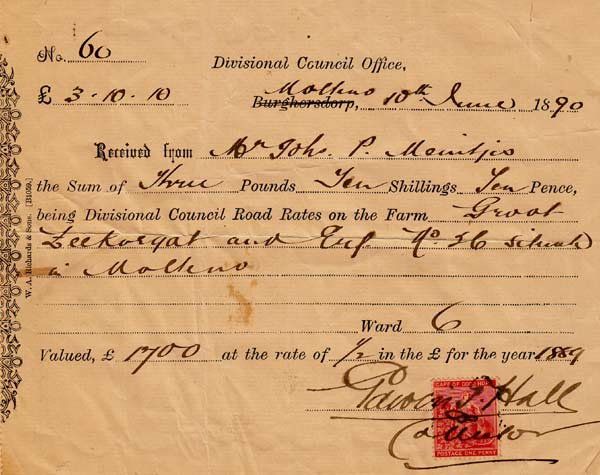 No. 60
Divisional Council Office,
£ 3-10-10
Molteno
Burghersdorp, 10th June 1890
Received from Mr Johs. P. Meintjes
the Sum of Three Pounds Ten Shillings Ten Pence,
being Divisional Council Road Rates on the Farm Groot
Zeekoegat and Erf No 26 situate
in Molteno
Ward 6
Valued, £ 1700 at the rate of 1/2 in the £ for the year 1889
Hall
CAPE OF GOOD HOPE
POSTAGE ONE PENNY
W. A. Richards & Sons.